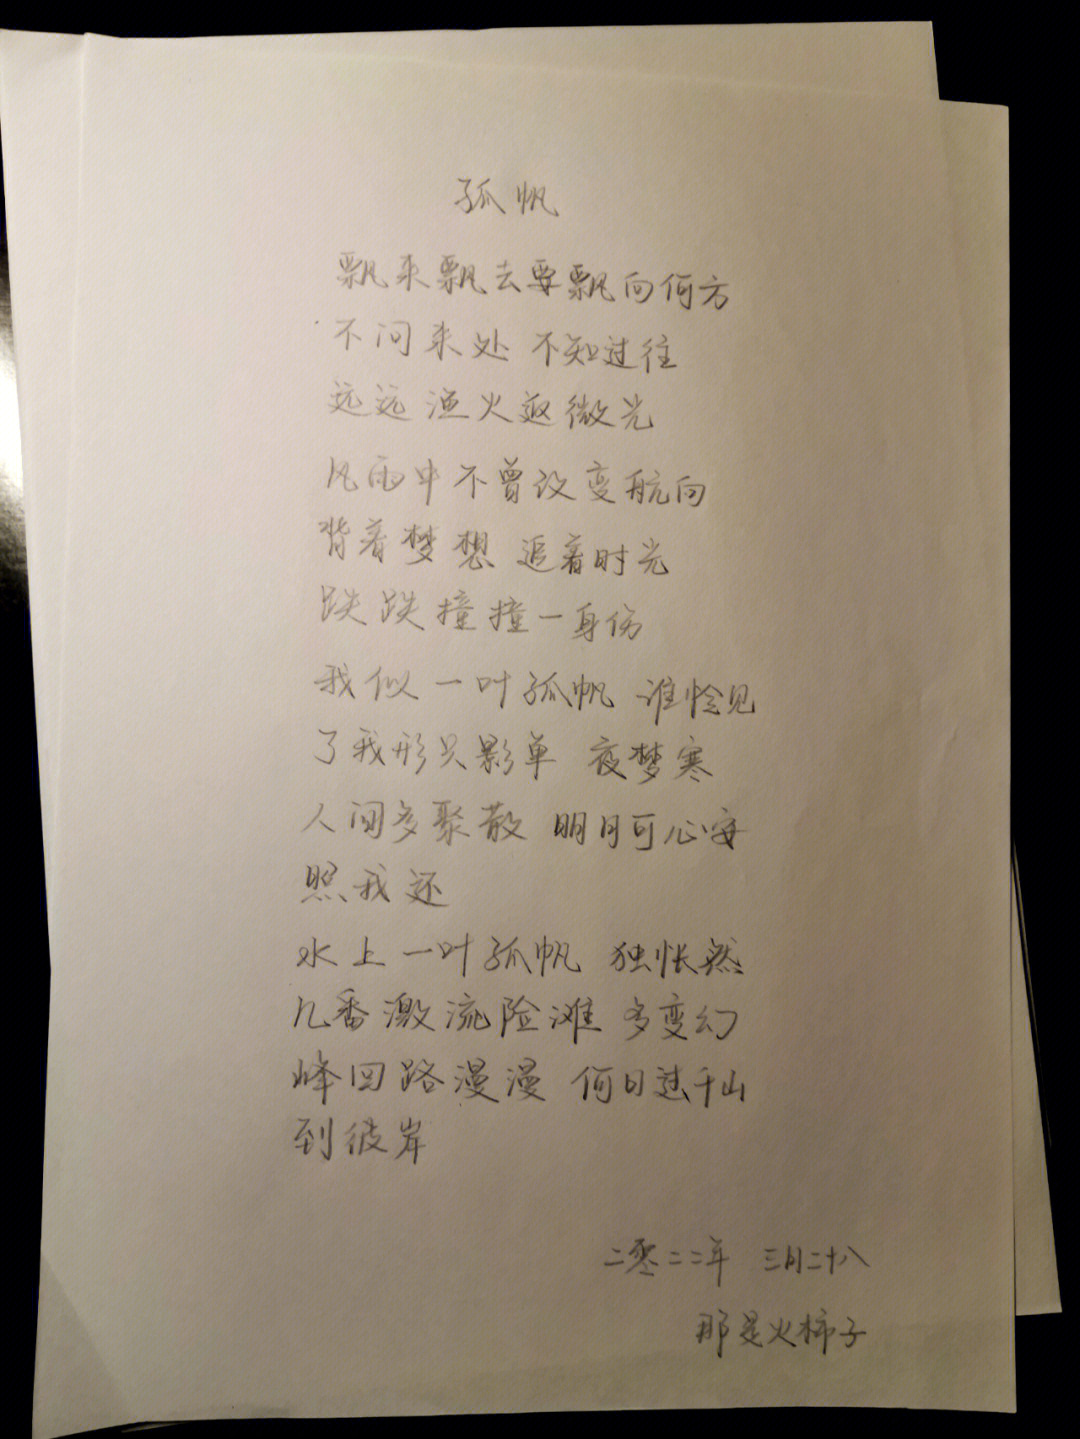 孤帆
飘来飘去要飘向何方
不问来处 不知过往
远远渔火返微光
风雨中不曾改变航向
背着梦想 追着时光
跌跌撞撞一身伤
我似一叶孤帆 谁怜见
了我形只影单 夜梦寒
人间多聚散 明月可心安
照我还
水上一叶孤帆 独怅然
几番激流险滩 多变幻
峰回路漫漫 何日过千山
到彼岸
二零二二年 三月二十八
那是火柿子